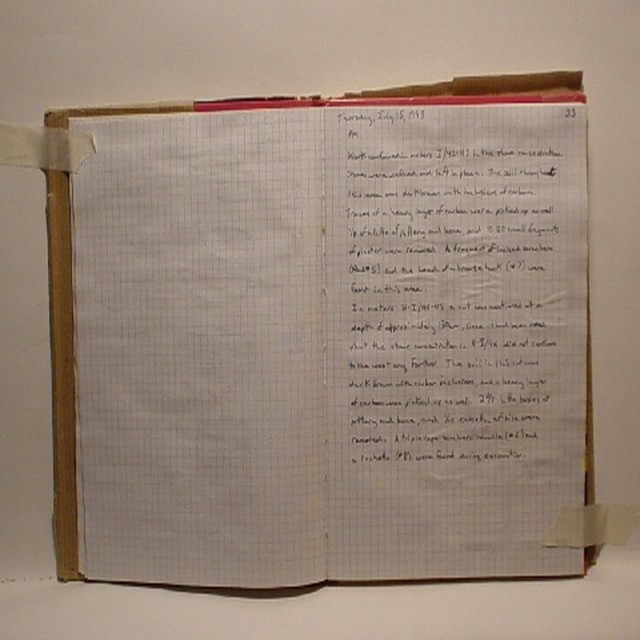 Thursday, July 15, 1993
33
PM.
Work continued in meters I/42-43 in the stone concentration.
Stones were outlined and left in place. The soil throughout
this area was dark brown with inclusions of carbon.
Traces of a heavy layer of carbon were picked up as well.
of pottery and bone, and 15-20 small fragments
of plaster were removed. A fragment of worked bone here
and the head of a bronze tack (#7) were
found in this area.
In meters H-I/44-45 a cut was continued at a
depth of approximately 130cm, since it had been noted
that the stone concentration in H-I/46 did not continue
to the west any further. The soil in this cut was
dark brown with carbon inclusions, and a heavy layer
of carbon was picked up as well. 2 1/2 little boxes of
pottery and bone, and of tile were
removed. A triple cupped bone handle (#6) and
a rochetto (#8) were found during excavation.